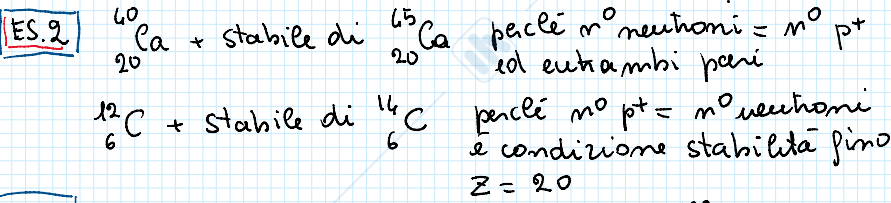 ES.2 ⁴⁰₂₀Ca + stabile di ⁴⁵₂₀Ca perché n° neutroni = n° p⁺
ed entrambi pari
¹²₆C + stabile di ¹⁴₆C perché n° p⁺ = n° neutroni
è condizione stabilità fino
Z = 20